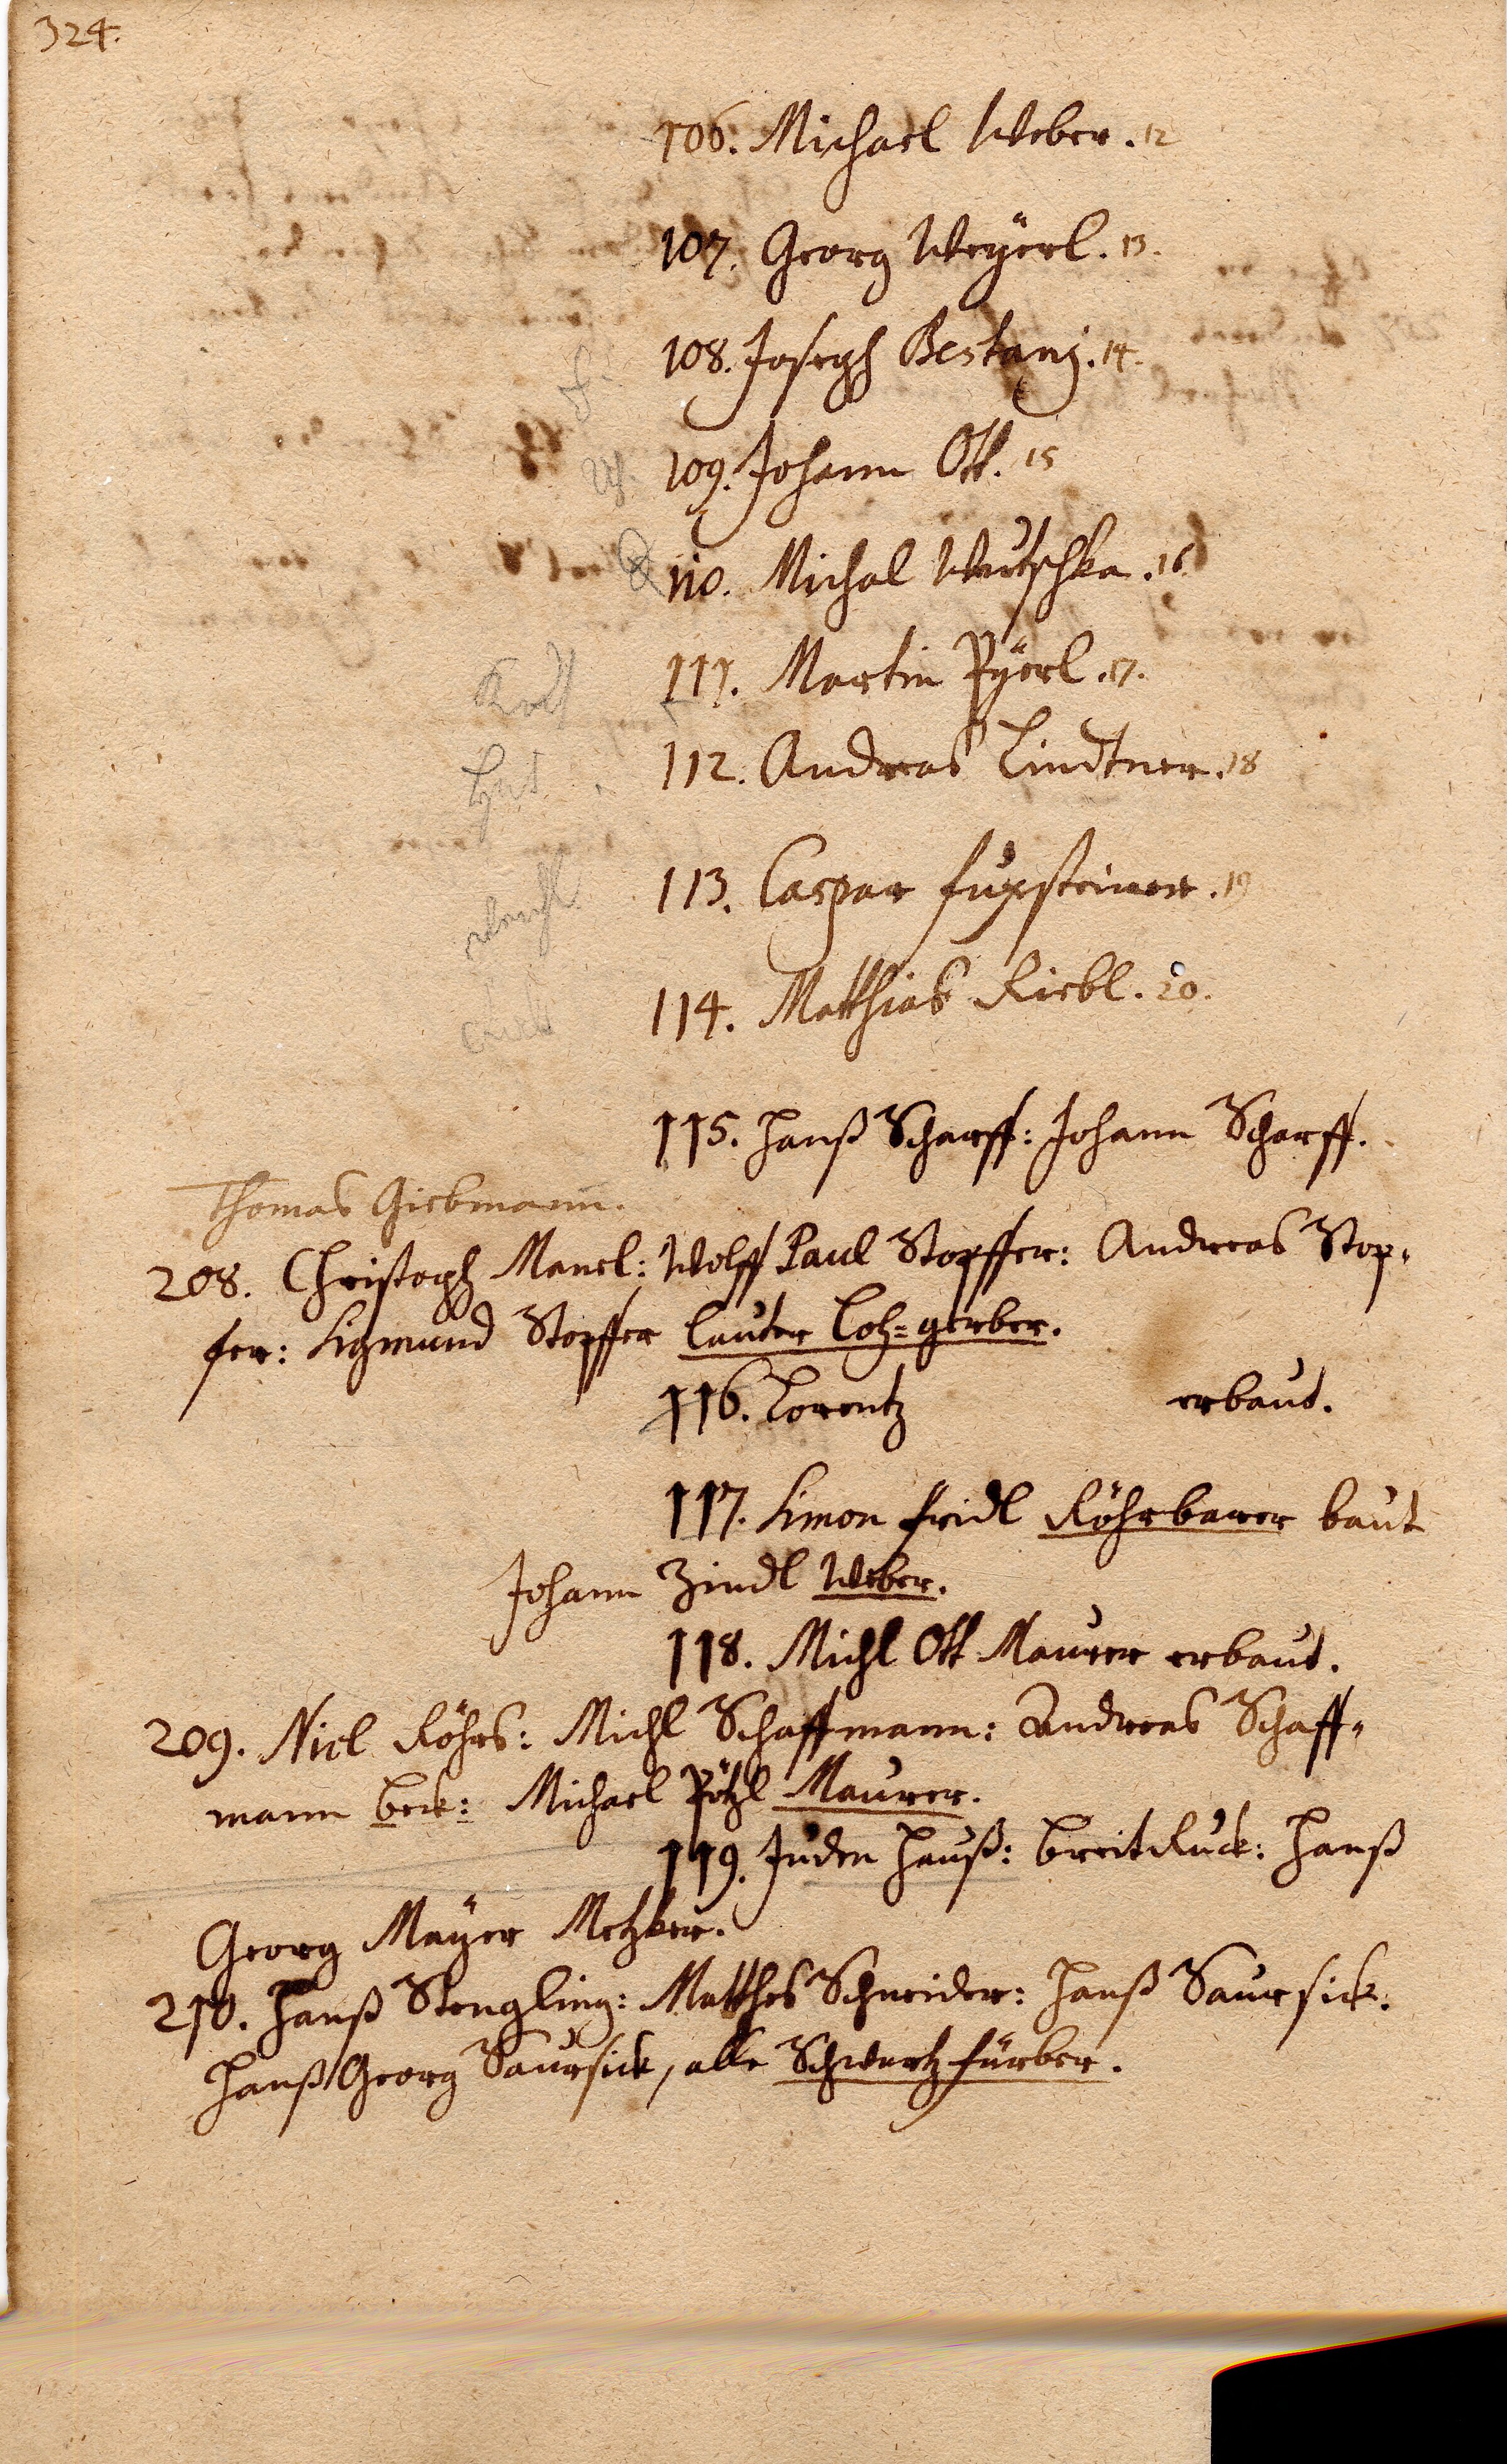 324.
106. Michael Weber. 12
107. Georg Weÿerl. 13.
108. Joseph Bestanj. 14.
109. Johann Ott. 15
110. Michal Wutschka. 16
111. Martin Pÿerl. 17.
112. Andreas Lindtner. 18
113. Caspar fuxsteiner. 19
114. Matthias Riebl. 20.
115. Hanß Scharff: Johann Scharff.
Thomas Giebmann.
208. Christoph Manel: Wolff Paul Stopffer: Andreas Stop-
fer: Sigmund Stopffer lauter Loh=gerber.
116. Lorentz erbaut.
117. Simon fridl Röhrbarer baut
Johann Zindl Weber.
118. Michl Ott Maurer erbaut.
209. Nicl Röhrs: Michl Schaffmann: Andreas Schaff-
mann beck: Michael Pötzl Maurer.
119. Juden Hauß: breitRuck: Hanß
Georg Mayer Metzker.
210. Hanß Stengling: Matthes Schneider: Hanß Saursick.
Hanß Georg Saursick, alle Schwartz färber.